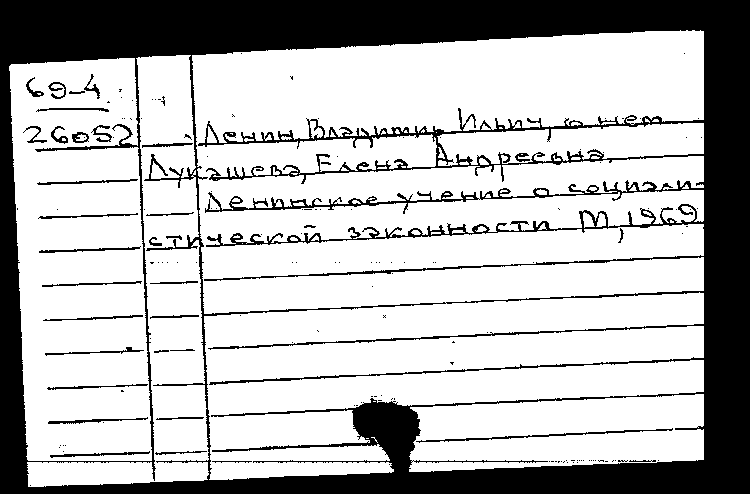 69-4
26052
Ленин, Владимир Ильич, о нем
Лукашева, Елена Андреевна.
Ленинское учение о социали-
стической законности М, 1969